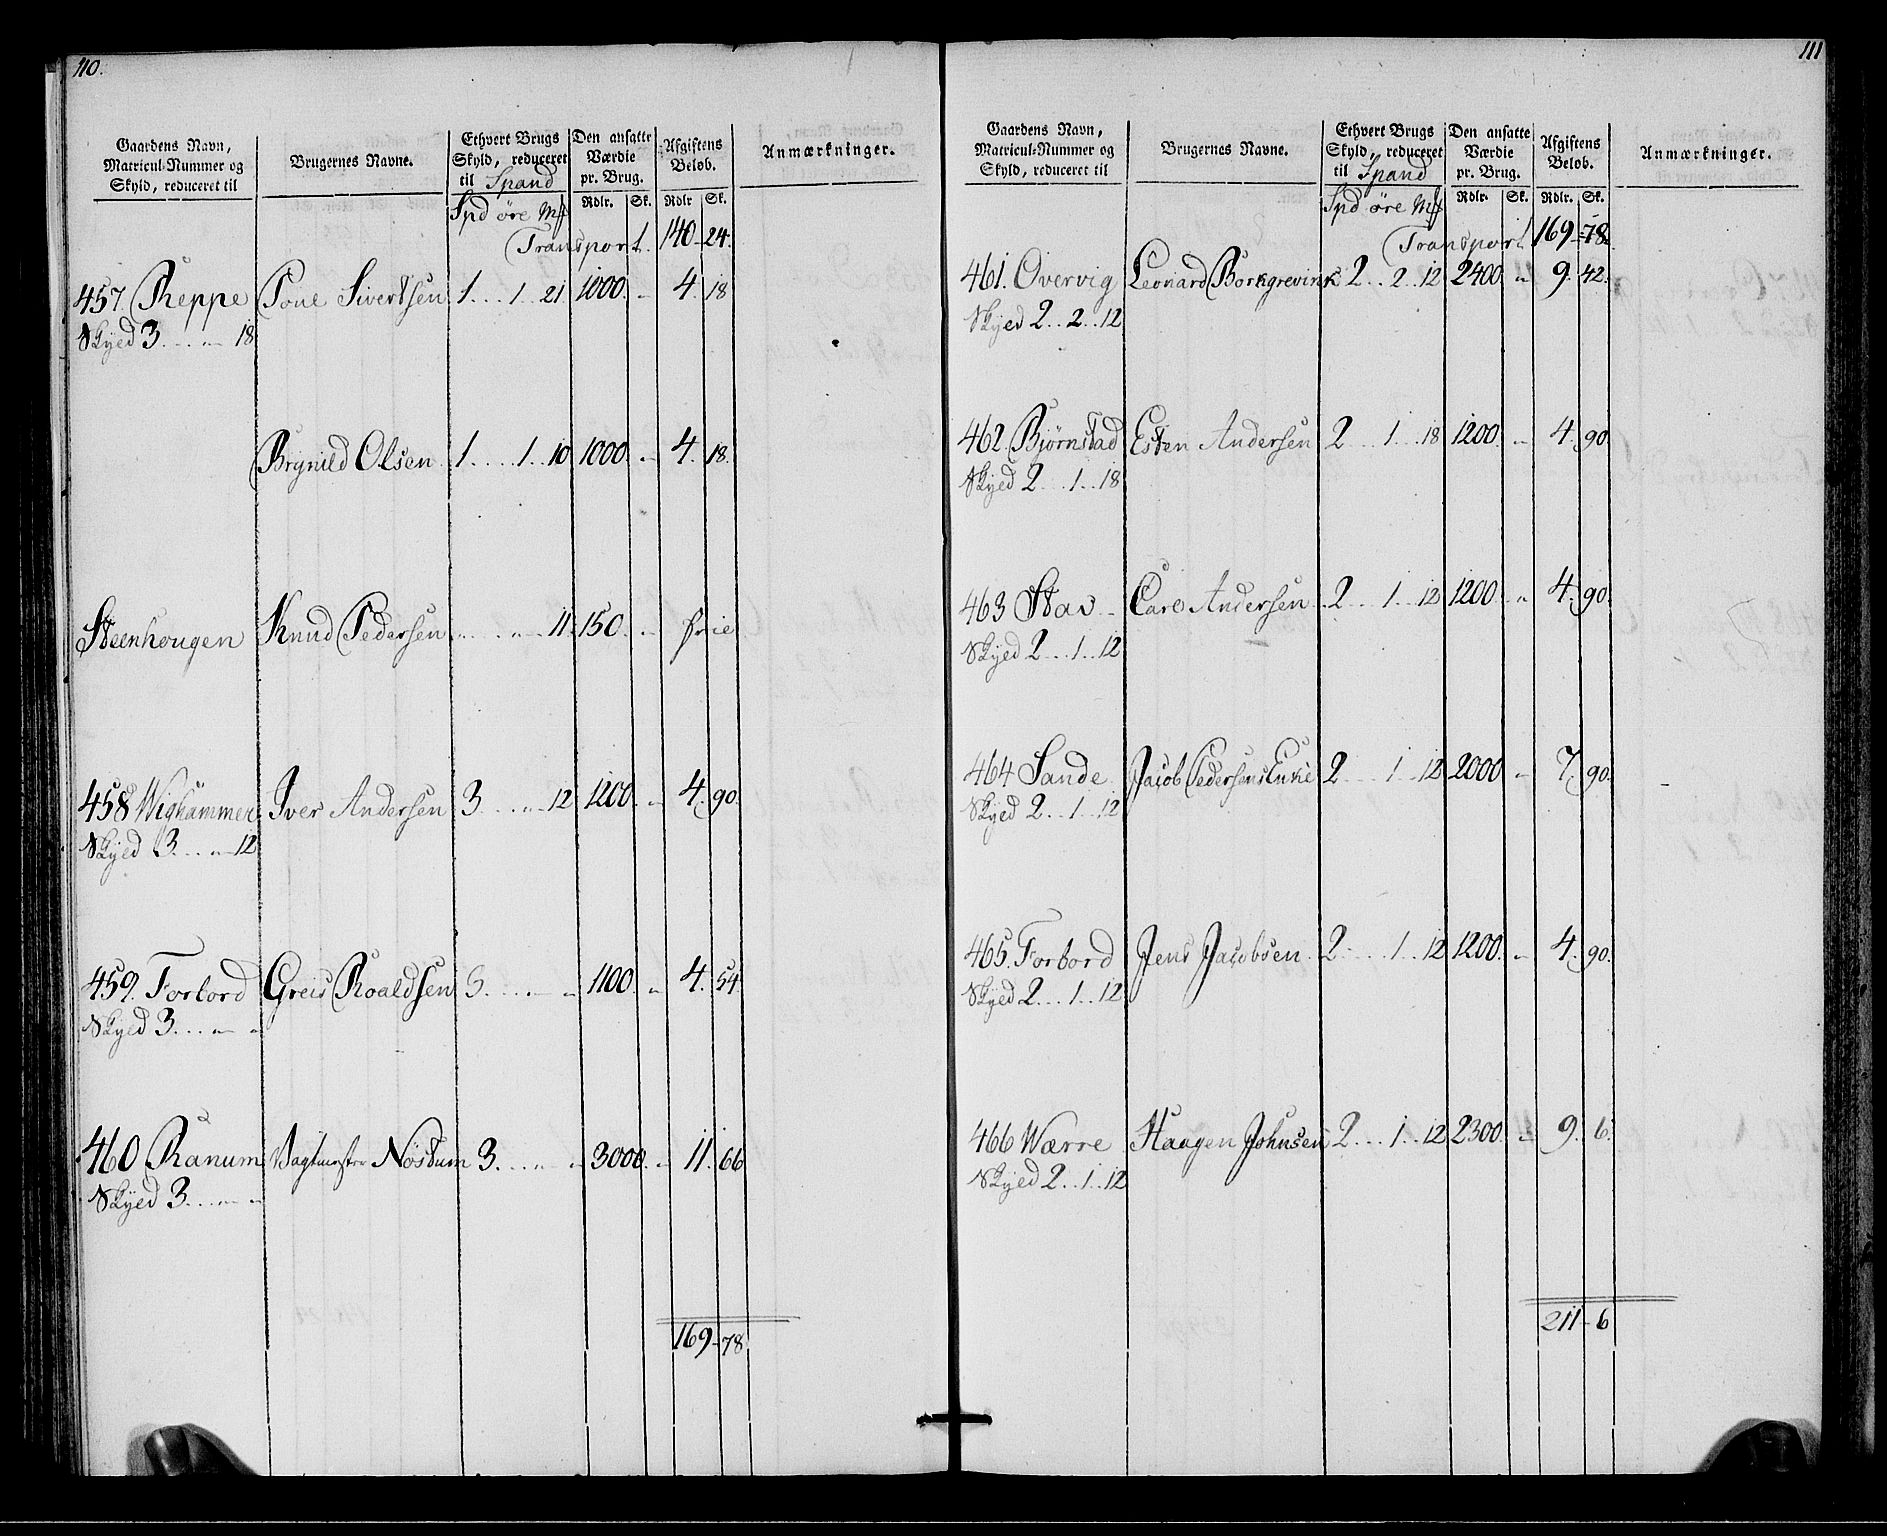 110.
Gaardens Navn, Matricul-Nummer og Skyld, reduceret til | Brugernes Navne. | Ethvert Brugs Skyld, reduceret til Spand | Den ansatte Værdie pr. Brug. | Afgiftens Beløb. | Anmærkninger.
Spd øre Mk | Rdlr. | Sk. | Rdlr | Sk.
Transport. 140 - 24.
457. Reppe Tone Sivertsen 1 . . 1 . 21 1000. „ 4. 18
Skyed 3 . . „ 18
Brynild Olsen 1 . . . 1 . . 10 1000. „ 4. 18.
Steenhougen Knud Pedersen „ . . „ . . 11. 150. „ frie
458 Wighammer Iver Andersen 3 . . „ . 12 1200. „ 4. 90.
Skyed 3 . . „ 12
459. Forbord Greis Roaldsen 3 . . „ „ 1100. „ 4. 54
Skyed 3 . . „ „
460 Ranum Vagtmester Nøstum 3 . . „ „ 3000. „ 11. 66
Skyed 3 . . „ „
169 - 78.
111
Gaardens Navn, Matricul-Nummer og Skyld, reduceret til | Brugernes Navne. | Ethvert Brugs Skyld, reduceret til Spand | Den ansatte Værdie pr. Brug. | Afgiftens Beløb. | Anmærkninger.
Spd øre Mk | Rdlr. | Sk. | Rdlr. | Sk.
Transport 169 - 78.
461. Overvig Leonard Borkgrevink 2 . . 2 . . 12 2400. „ 9. 42.
Skyed 2 . . 2 . . 12
462. Bjørnstad Esten Andersen 2 . . 1 . . 18 1200. „ 4. 90.
Skyed 2 . . 1 . . 18
463 Stav Carl Andersen 2 . . 1 . . 12 1200. „ 4. 90.
Skyed 2 . . 1 . . 12
464 Sande Jacob Pedersens Enke 2 . . 1 . . 12 2000 „ 7. 90.
Skyed 2 . . 1 . . 12
465. Forbord Jens Jacobsen 2 . . 1 . . 12 1200. „ 4. 90.
Skyed 2 . . 1 . . 12
466 Wærre Haagen Johnsen 2 . . 1 . . 12 2300. „ 9. 6.
Skyed 2 . . 1 . . 12
211 - 6